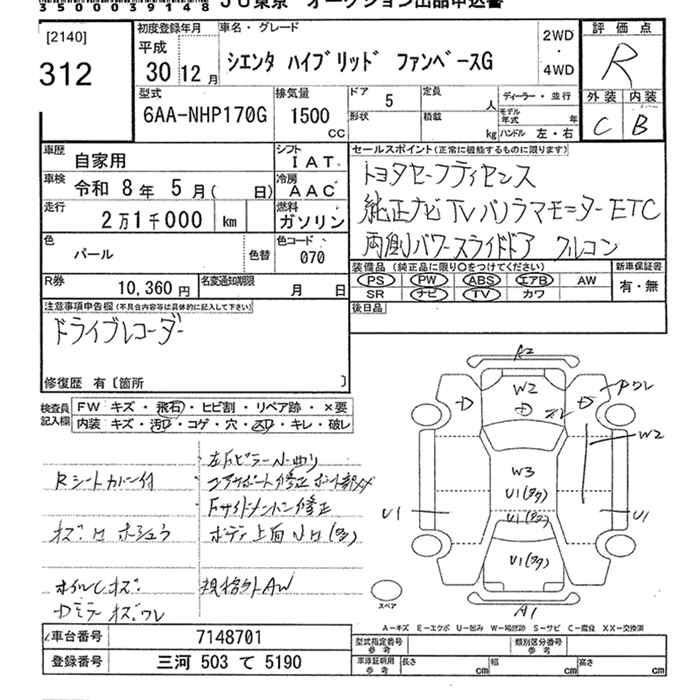 35000039148 JU東京 オークション出品申込書
[2140]
312
初度登録年月
平成
30年 12月
車名・グレード
シエンタ ハイブリッド ファンベースG
2WD
・
4WD
評価点
R
外装 内装
C B
型式
6AA-NHP170G
排気量
1500
CC
ドア 5
形状
定員 人
積載 kg
ディーラー・並行
モデル年式 年
ハンドル 左・右
車歴
自家用
シフト
IAT
車検
令和 8年 5月( 日)
冷房
AAC
走行
2万1千000 km
燃料
ガソリン
色
パール
色替
色コード
070
R券
10,360円
名変通知期限
月 日
セールスポイント(正常に機能するものに限ります)
トヨタセーフティセンス
純正ナビ TV パノラマモニター ETC
両側パワースライドドア フルコン
装備品(純正品に限り○をつけてください)
PS PW ABS エアB AW
SR ナビ TV カワ
新車保証書
有・無
後日品
注意事項申告欄(不具合内容等は具体的に記入して下さい)
ドライブレコーダー
修復歴 有〔箇所 〕
検査員
記入欄
FW キズ・飛石・ヒビ割・リペア跡・×要
内装 キズ・汚レ・コゲ・穴・スレ・キレ・破レ
Rシートカバー付
規格外AW
A2
W2
W2
W3
U1(多)
U1(多)
U1(多)
U1
U1
A1
スペア
A-キズ E-エクボ U-凹み W-補修跡 S-サビ C-腐食 XX-交換済
車台番号
7148701
登録番号
三河 503 て 5190
型式指定番号
参考
類別区分番号
参考
車庫証明用
参考
長さ cm
幅 cm
高さ cm